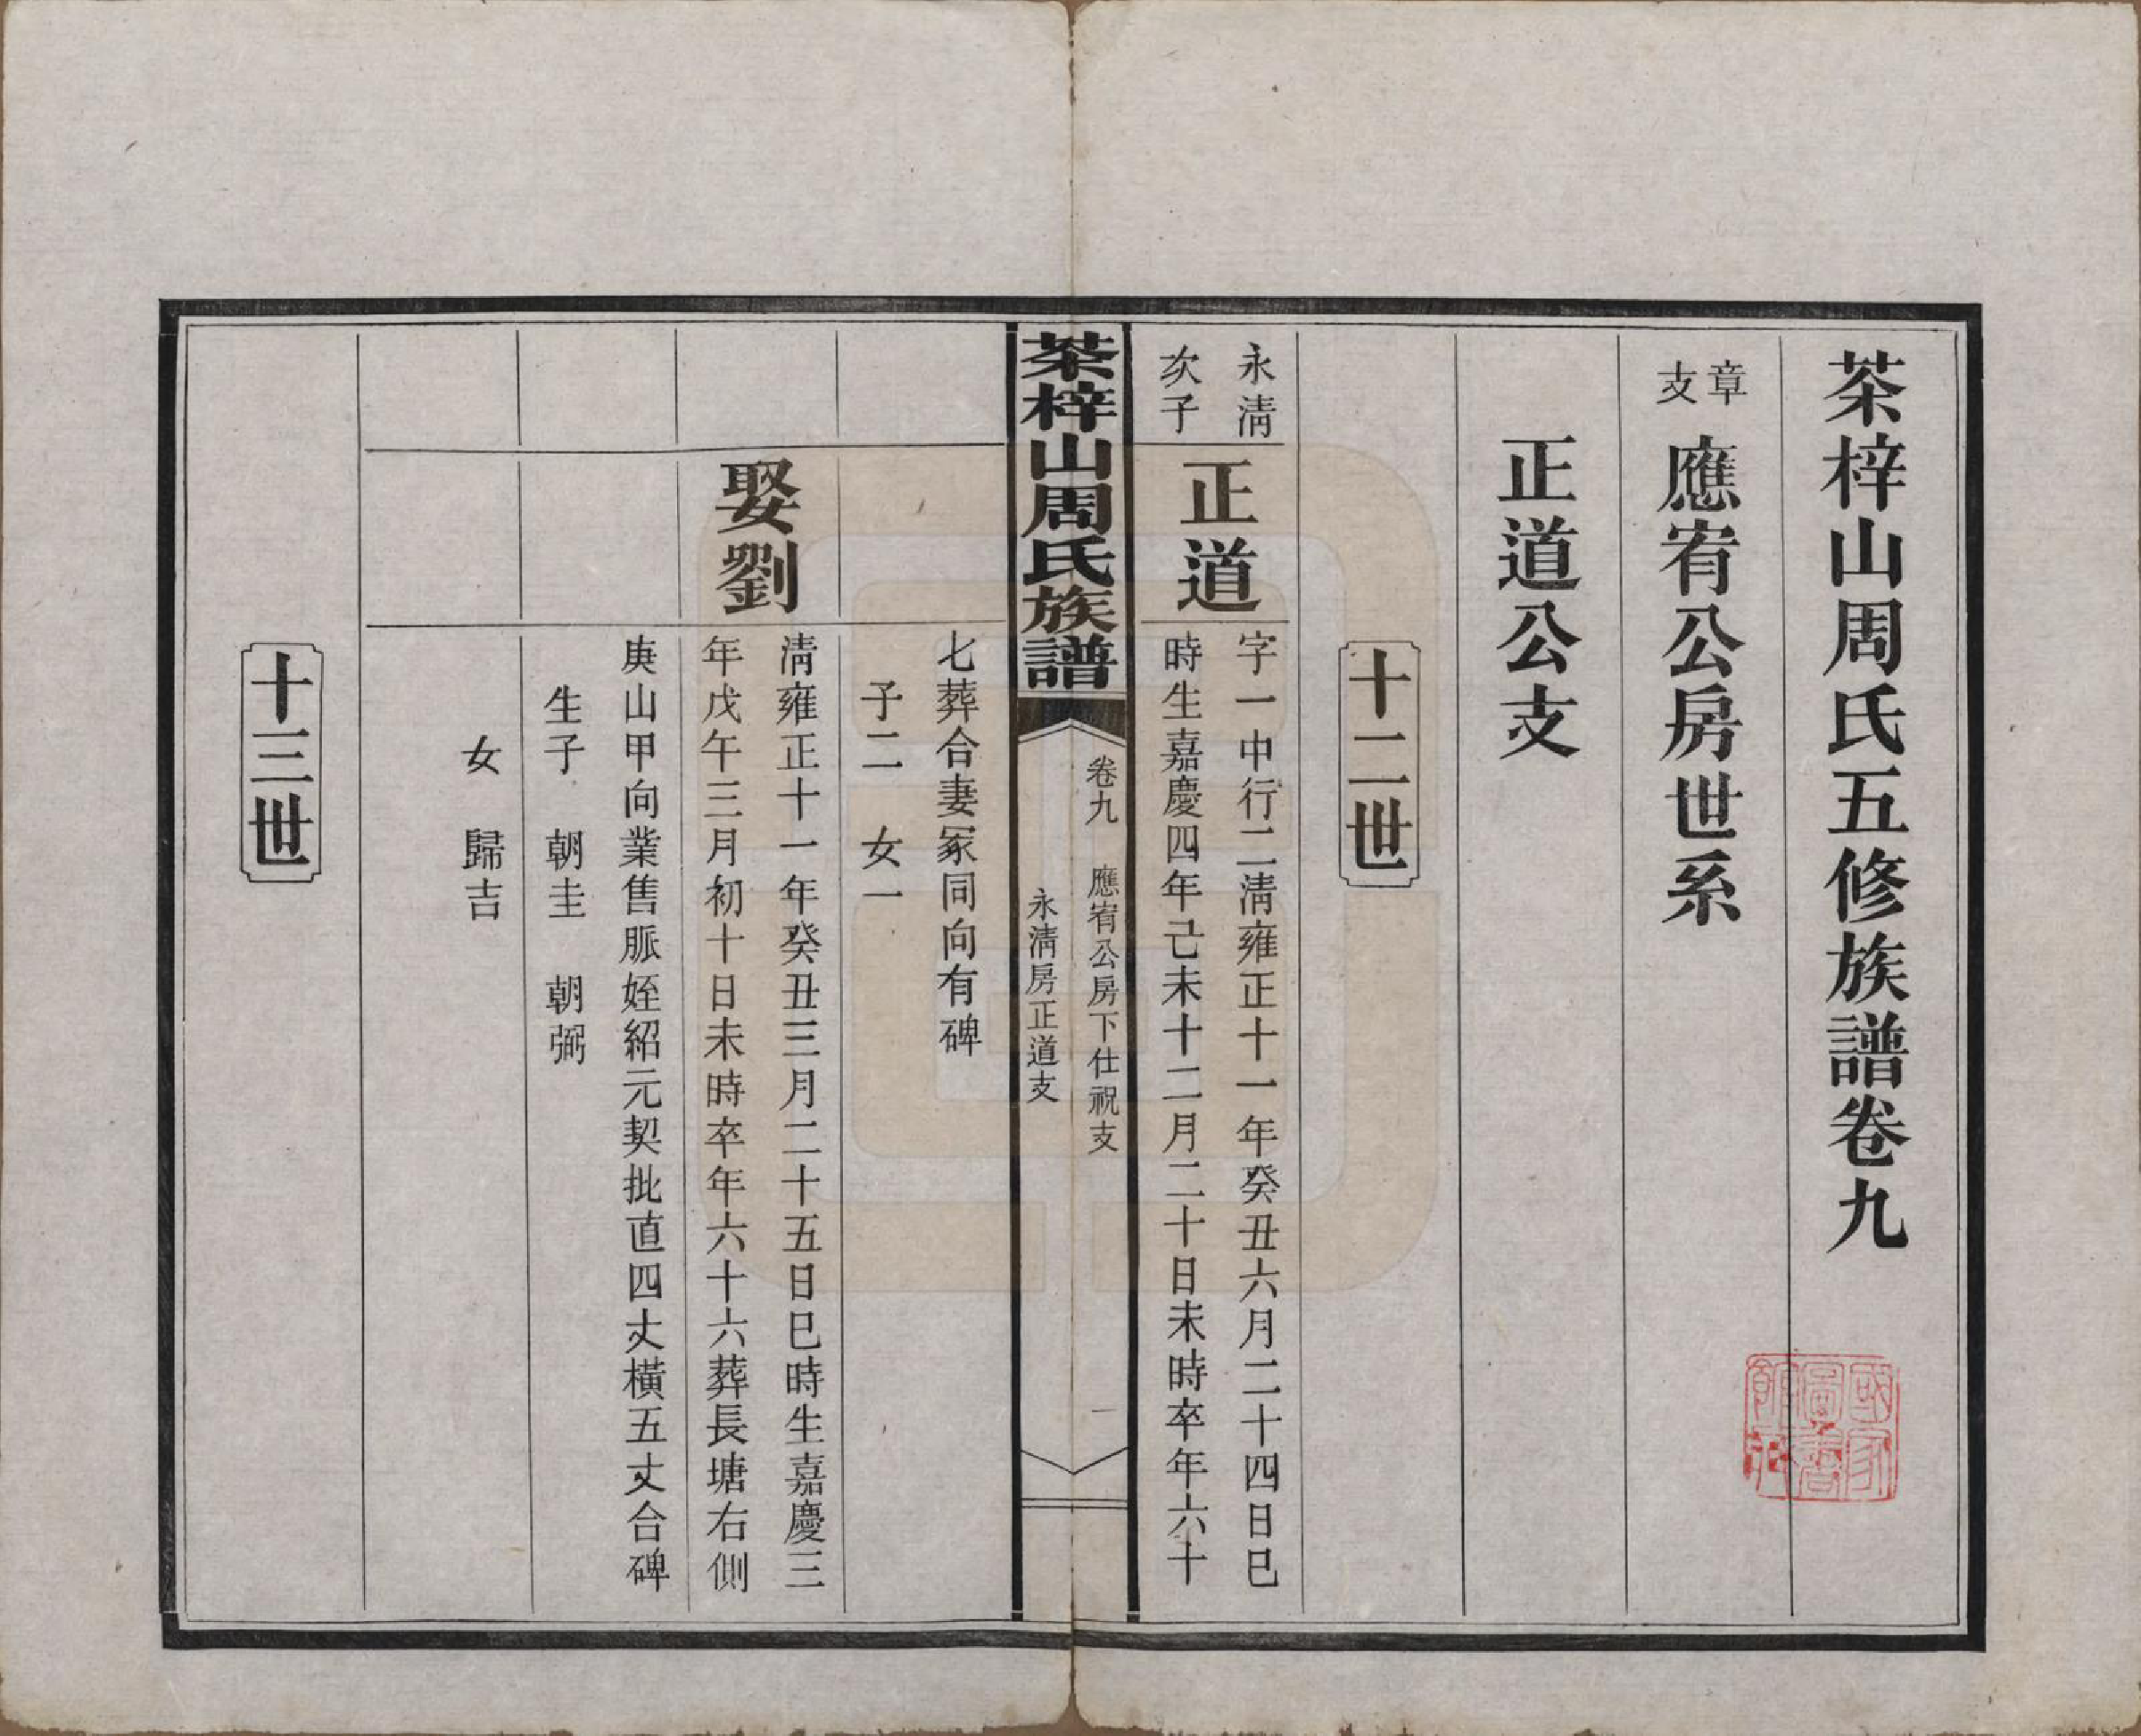 茶梓山周氏五修族譜卷九
章支 應宥公房世系
正道公支
十二世
永淸
次子
正道
字一中行二淸雍正十一年癸丑六月二十四日巳
時生嘉慶四年己未十二月二十日未時卒年六十
茶梓山周氏族譜
卷九 應宥公房下仕祝支
永淸房正道支
一
七葬合妻冢同向有碑
子二 女一
娶劉
淸雍正十一年癸丑三月二十五日巳時生嘉慶三
年戊午三月初十日未時卒年六十六葬長塘右側
庚山甲向業售脈姪紹元契批直四丈橫五丈合碑
生子 朝圭 朝弼
女 歸吉
十三世
國家圖書館藏